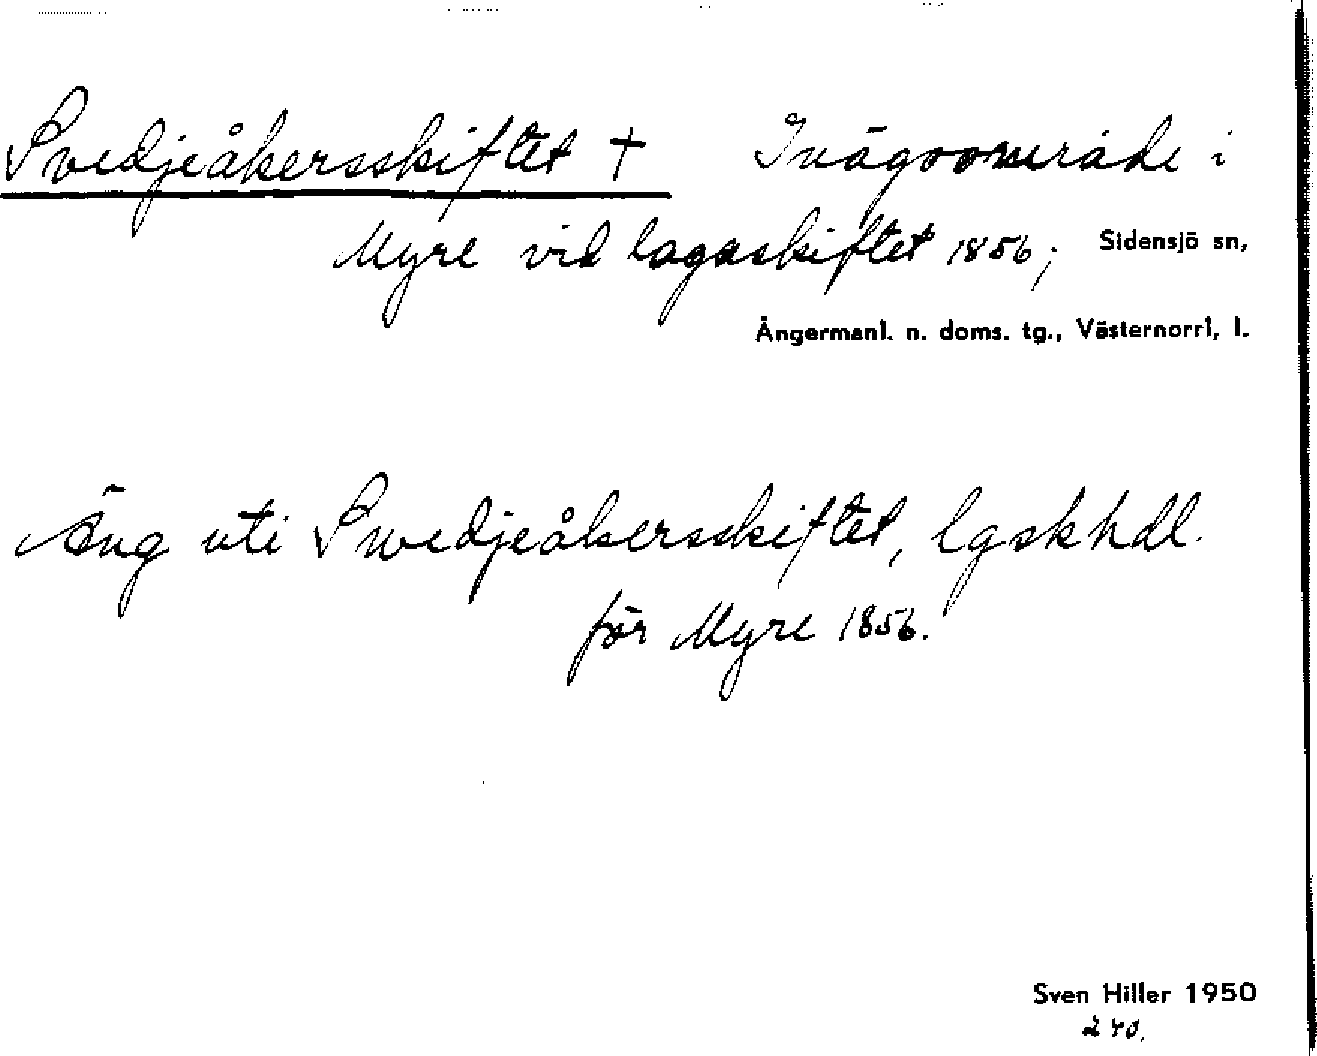 Svedjeåkersskiftet † Inägoområde i
Myre vid lagaskiftet 1856; Sidensjö sn,
Ångermanl. n. doms. tg., Västernorrl, l.
Äng uti Swedjeåkersskiftet, lgskhdl.
för Myre 1856.
Sven Hiller 1950
240.